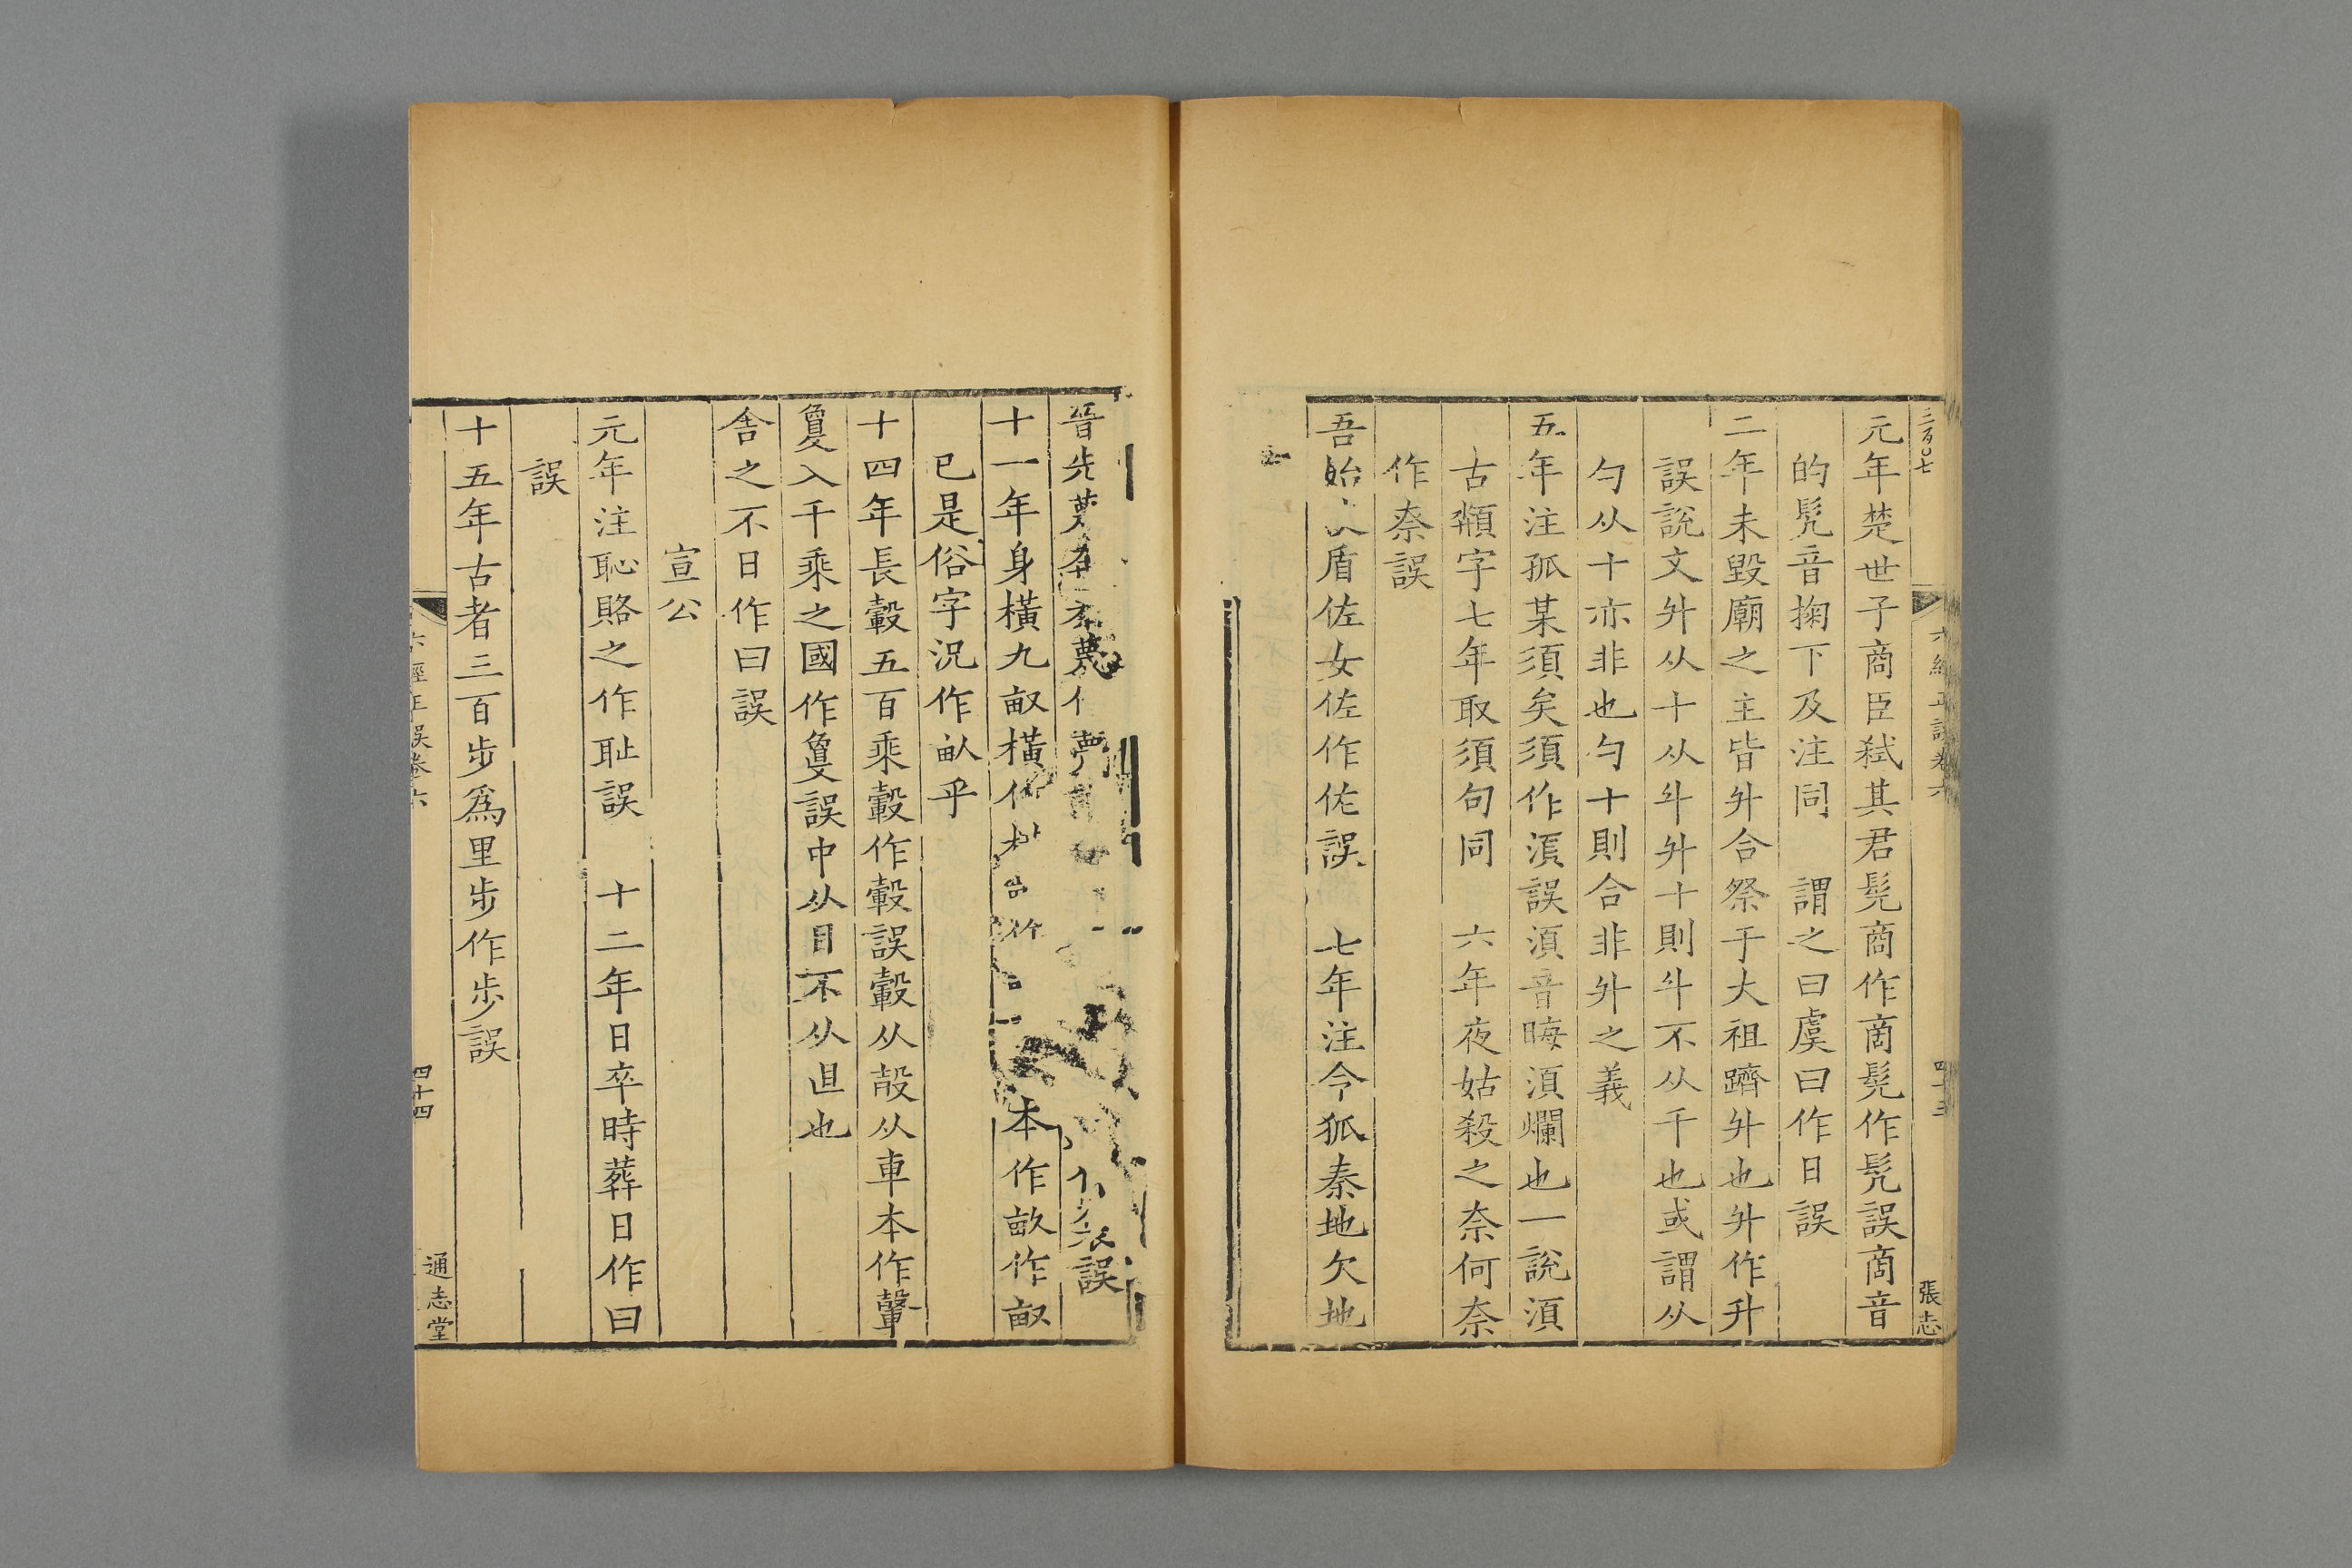 三百〇七
張志
元年楚世子商臣弒其君髡商作啇髡作髠誤啇音
的髠音掬下及注同　謂之曰虞曰作日誤
二年未毀廟之主皆升合祭于大祖躋升也升作升
誤說文升从十从斗升十則斗不从千也或謂从
勺从十亦非也勺十則合非升之義
五年注孤某須矣須作湏誤湏音晦湏爛也一說湏
古頮字七年取須句同　六年夜姑殺之柰何柰
作奈誤
吾始 盾佐女佐作佐誤　七年注令狐秦地欠地
晉先蔑 蔑 誤
十一年身橫九畝橫 本作畞作畝
已是俗字況作畝乎
十四年長轂五百乘轂作轂誤轂从𣪊从車本作轚
敻入千乘之國作敻誤中从目不从且也
舍之不日作曰誤
宣公
元年注恥賂之作耻誤　十二年日卒時葬日作曰
誤
十五年古者三百步爲里步作歩誤
六經正誤卷六
四十四
通志堂